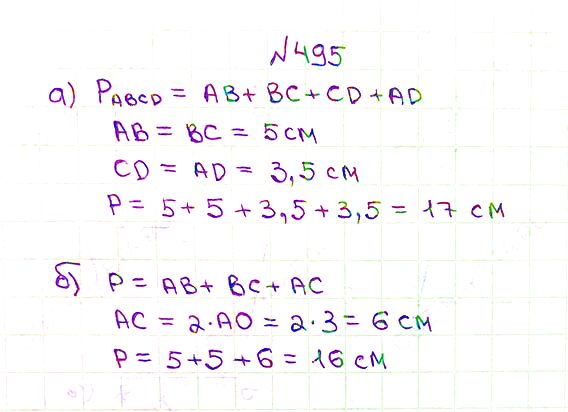 №495
а) P_ABCD = AB + BC + CD + AD
AB = BC = 5 см
CD = AD = 3,5 см
P = 5 + 5 + 3,5 + 3,5 = 17 см
б) P = AB + BC + AC
AC = 2·AO = 2·3 = 6 см
P = 5 + 5 + 6 = 16 см